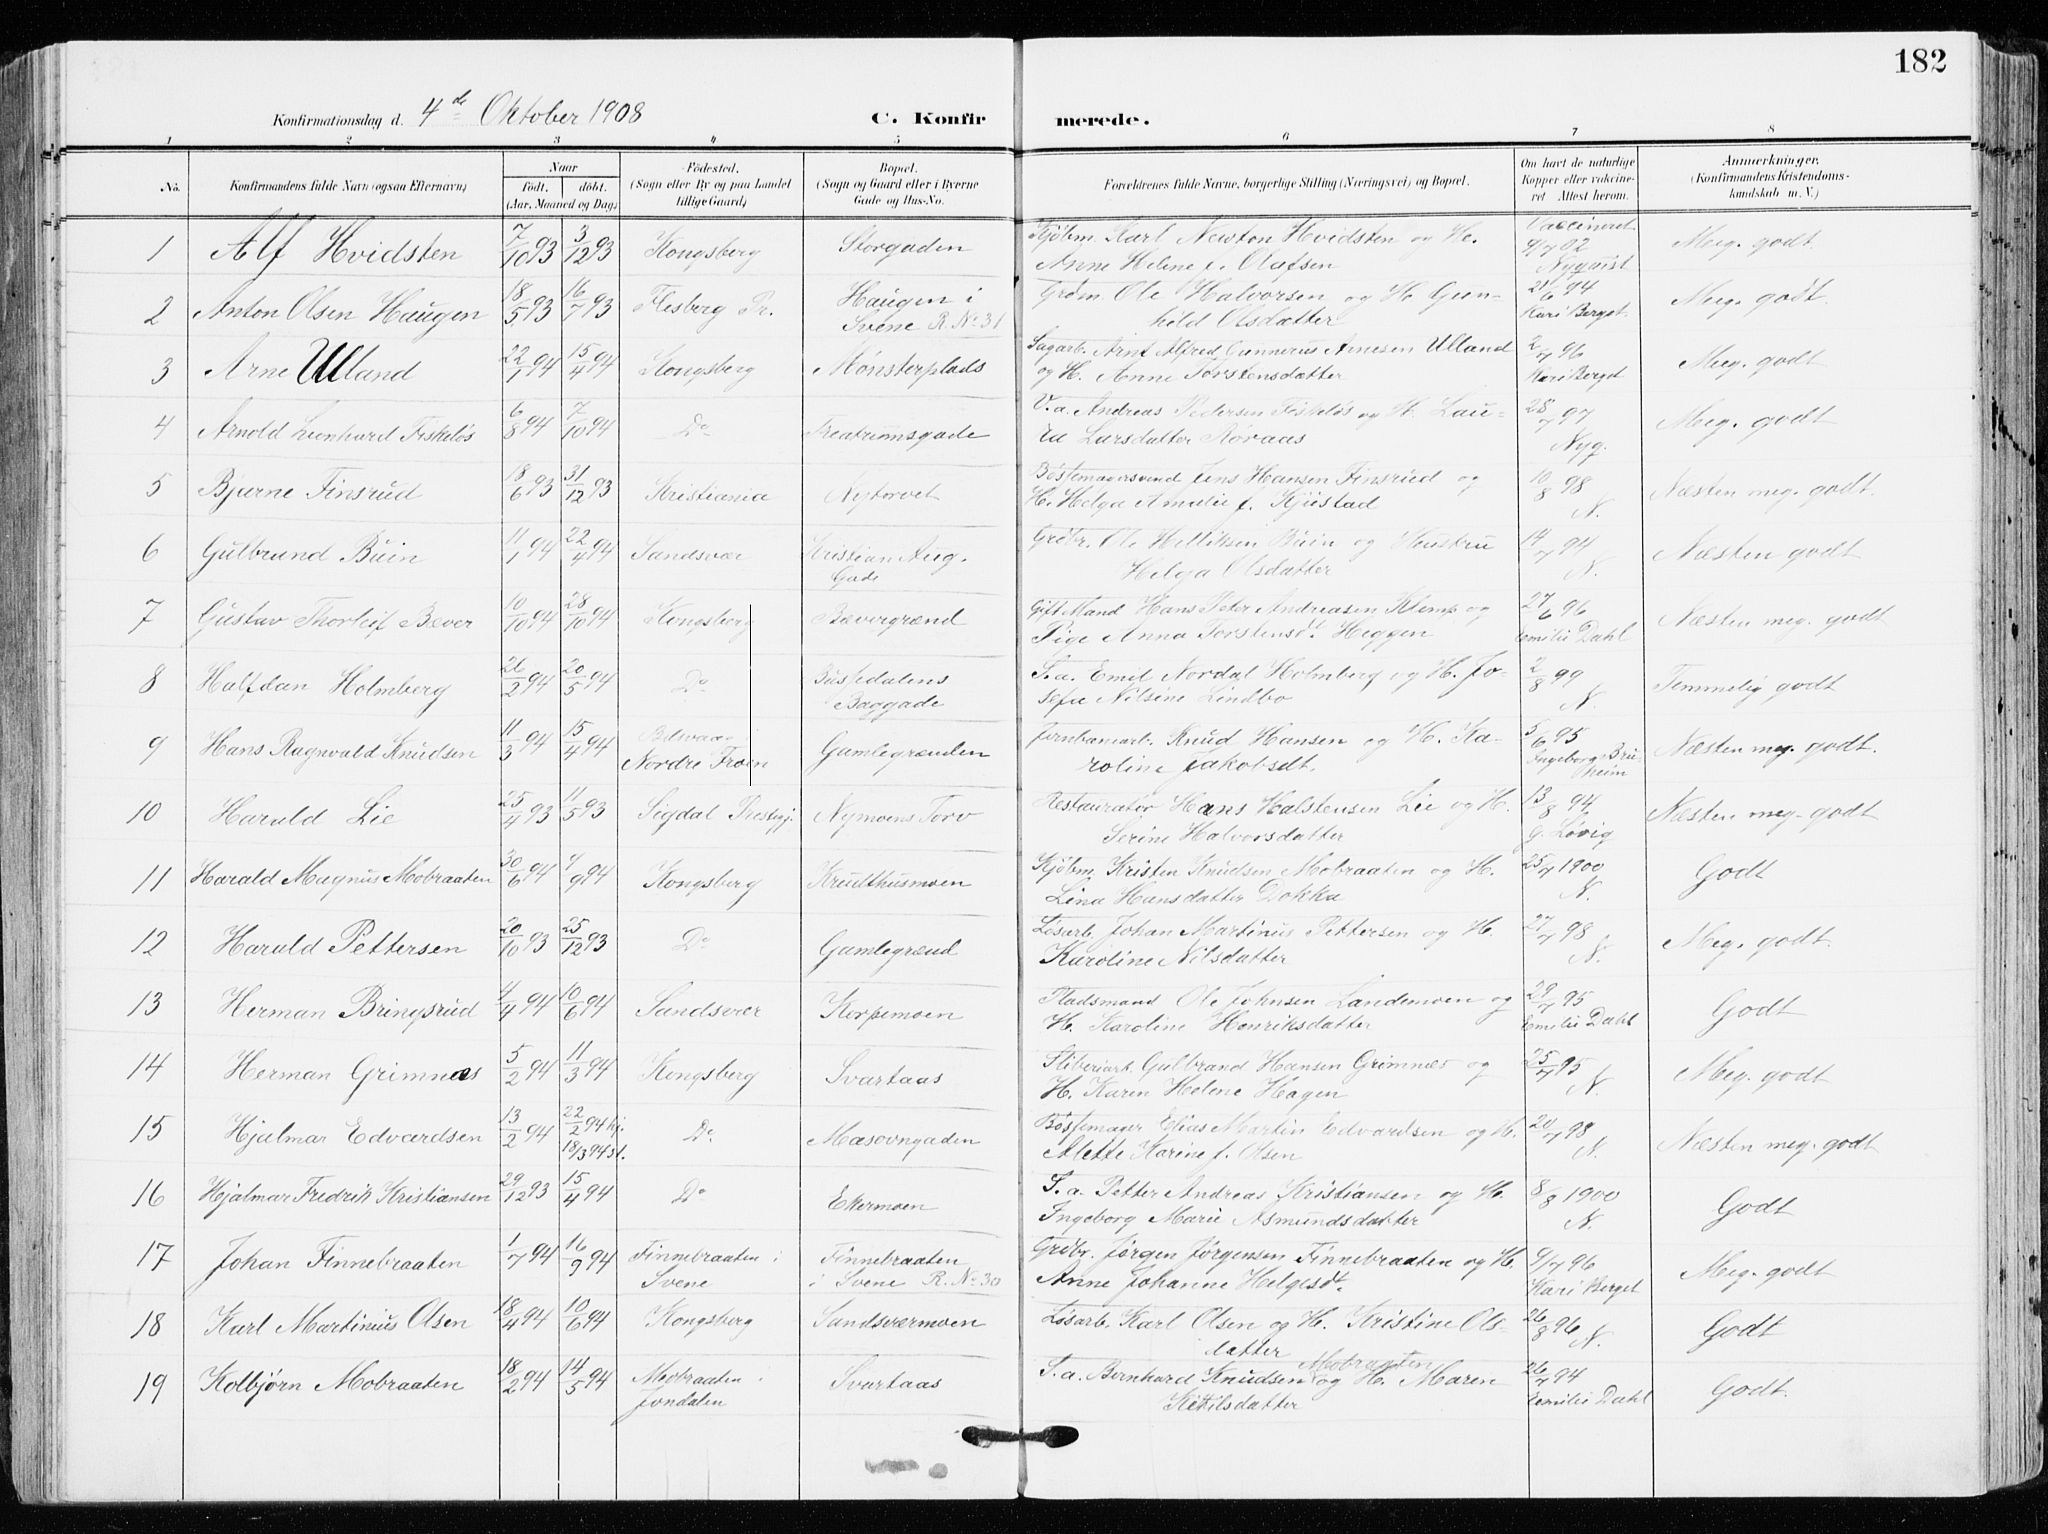 182
Konfirmationsdag d. 4de Oktober 1908 C. Konfirmerede.
1 2 3 4 5 6 7 8
No. Konfirmandens fulde Navn (ogsaa Efternavn) Naar født, døbt. (Aar, Maaned og Dag) Fødested. (Sogn eller By og paa Landet tillige Gaard) Bopæl. (Sogn og Gaard eller i Byerne Gade og Hus-No. Forældrenes fulde Navne, borgerlige Stilling (Næringsvei) og Bopæl. Om havt de naturlige Kopper eller vaccineret Attest herom. Anmerkninger. (Konfirmandens Kristendomskundskab m. V.)
1 Alf Hvidsten 7/10 93 3/12 93 Kongsberg Storgaden Kjøbm. Karl Newton Hvidsten og H. Vaccineret Meg. godt.
Anne Helene f. Olafsen 9/7 02 Nyquist
2 Anton Olsen Haugen 18/5 93 16/7 93 Flesberg Pr. Haugen i Grdm. Ole Halvorsen og H. Gun- 21/6 94 Meg. godt.
Svene R. No 31 hild Olsdatter Kari Berget
3 Arne Ulland 22/1 94 15/4 94 Kongsberg Mønsterplads Sagarb. Arnt Alfred Gunnerus Arnesen Ulland 2/7 96 Meg. godt
og H. Anne Torstensdatter Kari Berget
4 Arnold Leonhard Fiskeløs 6/8 94 7/10 94 Do Treatrumsgade V.a. Andreas Pedersen Fiskeløs og H. Lau- 28/7 97 Meg. godt
ra Larsdatter Røraas Nyq.
5 Bjarne Finsrud 18/6 93 31/12 93 Kristiania Nytorvet Bøssemagersvend Jens Hansen Finsrud og 10/8 98 Næsten meg. godt.
H. Helga Amalie f. Kjiistad N.
6 Gulbrand Buin 11/1 94 22/4 94 Sandsvær Kristian Aug. Grdbr. Ole Helliksen Buin og Hustru 14/7 94 Næsten godt
Gade Helga Olsdatter N.
7 Gustav Thorleif Bæver 10/10 94 28/10 94 Kongsberg Bævergrænd Gift Mand Hans Peter Andreasen Klemp og 27/6 96 Næsten meg. godt
Pige Anna Torstensdt Heggen Emilie Dahl
8 Halfdan Holmberg 26/2 94 20/5 94 Do Bussedalens S.a. Emil Nordal Holmberg og H. Jo- 2/8 99 Temmelig godt
Baggade sefa Nilsine Lindbo N.
9 Hans Ragnvald Knudsen 11/3 94 15/4 94 Nordre Fron Gamlegrænden Jernbanearb. Knud Hansen og H. Ka- 5/6 95 Næsten meg. godt.
roline Jakobsdt. Ingeborg Bruheim
10 Harald Lie 25/4 93 11/5 93 Sigdal Prestegj. Nymoens Torv Restauratør Hans Halstensen Lie og H. 13/8 94 Næsten meg. godt
Serine Halvorsdatter G. Løvig
11 Harald Magnus Mobraaten 30/6 94 9/9 94 Kongsberg Krutthusmoen Kjøbm. Kristen Knudsen Mobraaten og H. 25/7 1900 Godt
Lina Hansdatter Dokka N.
12 Harald Pettersen 20/10 93 25/12 93 Do Gamlegrænd Løsarb. Johan Martinus Pettersen og H. 27/7 98 Meg. godt.
Karoline Nilsdatter N.
13 Herman Bringsrud 4/4 94 10/6 94 Sandsvær Korpemoen Pladsmand Ole Johnsen Landemoen og 29/7 95 Godt
H. Karoline Henriksdatter Emilie Dahl
14 Herman Grimnæs 5/2 94 11/3 94 Kongsberg Svartaas Sliberiarb. Gulbrand Hansen Grimnæs og 25/7 95 Meg. godt
H. Karen Helene Hagen N.
15 Hjalmar Edvardsen 13/2 94 22/2 94 hj. Do Masovngaden Bøssemager Elias Martin Edvardsen og H. 20/7 98 Næsten meg. godt
18/3 94 st. Alette Karine f. Olsen N.
16 Hjalmar Fredrik Kristiansen 29/12 93 15/4 94 Do Ekermoen S.a. Petter Andreas Kristiansen og H. 8/8 1900 Godt
Ingeborg Marie Asmundsdatter N.
17 Johan Finnebraaten 1/7 94 16/9 94 Finnebraaten i Finnebraaten Grdbr. Jørgen Jørgensen Finnebraaten og H. 9/7 96 Meg. godt
Svene i Svene R. No 30 Anne Johanne Helgesdt. Kari Berget
18 Karl Martinius Olsen 18/4 94 10/6 94 Kongsberg Sandsværmoen Løsarb. Karl Olsen og H. Kristine Ols- 26/8 96 Godt
datter N.
19 Kolbjørn Mobraaten 18/2 94 14/5 94 Mobraaten i Svartaas S.a. Bernhard Knudsen Mobraaten og H. Maren 26/7 94 Godt.
Jondalen Kittilsdatter Emilie Dahl